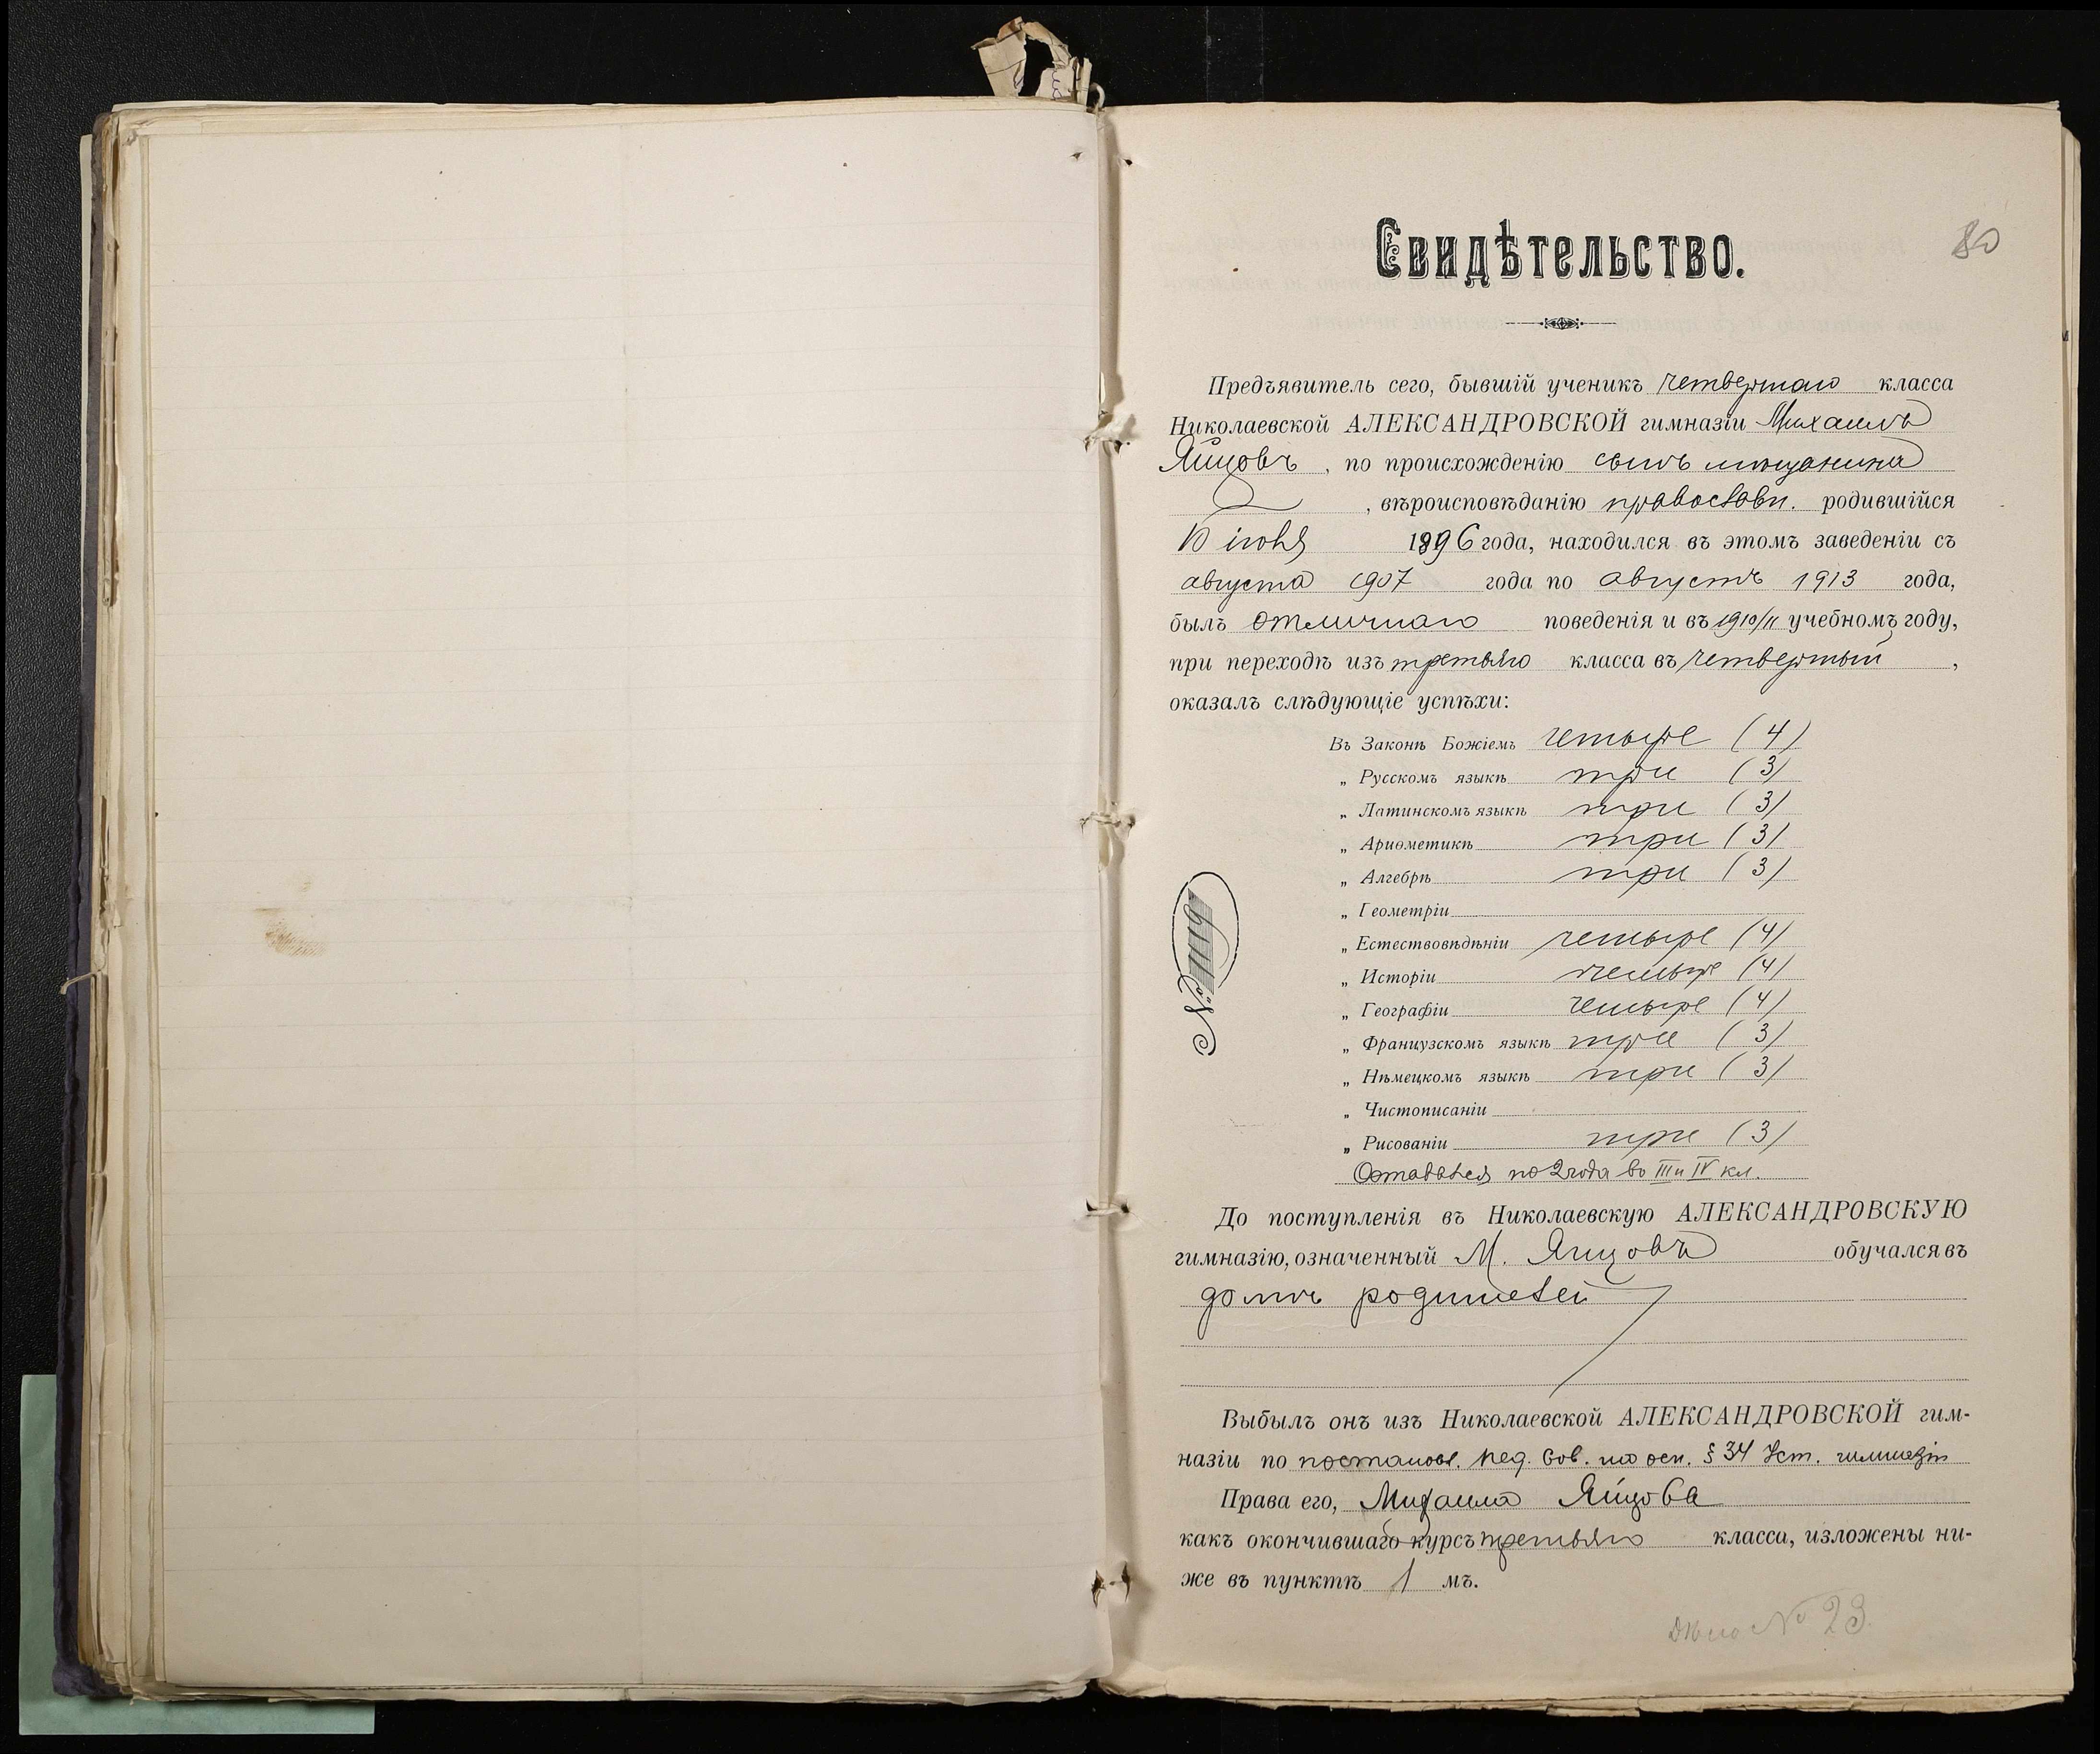 80
Свидѣтельство.
Предъявитель сего, бывшій ученикъ четвертаго класса
Николаевской АЛЕКСАНДРОВСКОЙ гимназіи Михаилъ
Яицовъ, по происхожденію сынъ мѣщанина
, вѣроисповѣданію православн. родившійся
10 іюня 1896 года, находился въ этомъ заведеніи съ
августа 1907 года по августъ 1913 года,
былъ отличнаго поведенія и въ 1910/11 учебномъ году,
при переходѣ изъ третьяго класса въ четвертый,
оказалъ слѣдующіе успѣхи:
Въ Законѣ Божіемъ четыре (4)
„ Русскомъ языкѣ три (3)
„ Латинскомъ языкѣ три (3)
„ Ариѳметикѣ три (3)
„ Алгебрѣ три (3)
„ Геометріи
„ Естествовѣдѣніи четыре (4)
„ Исторіи четыре (4)
„ Географіи четыре (4)
„ Французскомъ языкѣ три (3)
„ Нѣмецкомъ языкѣ три (3)
„ Чистописаніи
„ Рисованіи три (3)
Оставался по 2 года во III и IV кл.
№
До поступленія въ Николаевскую АЛЕКСАНДРОВСКУЮ
гимназію, означенный М. Яицовъ обучался въ
домѣ родителей
Выбылъ онъ изъ Николаевской АЛЕКСАНДРОВСКОЙ гим-
назіи по постановл. пед. Сов. на осн. § 34 Уст. гимназій
Права его, Михаила Яицова
какъ окончившаго курсъ третьяго класса, изложены ни-
же въ пунктѣ 1 мъ.
Дѣло № 23.